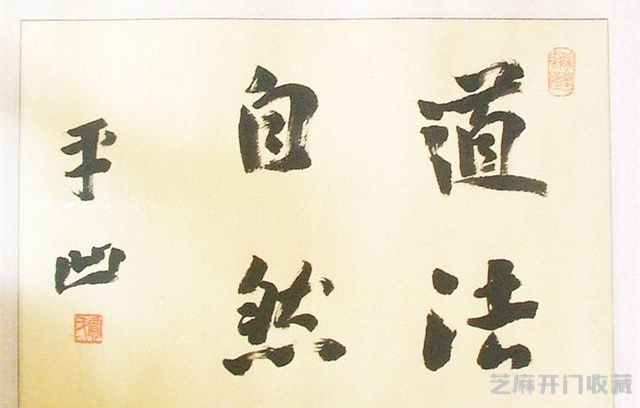 道法
自然
平凹
芝麻开门收藏